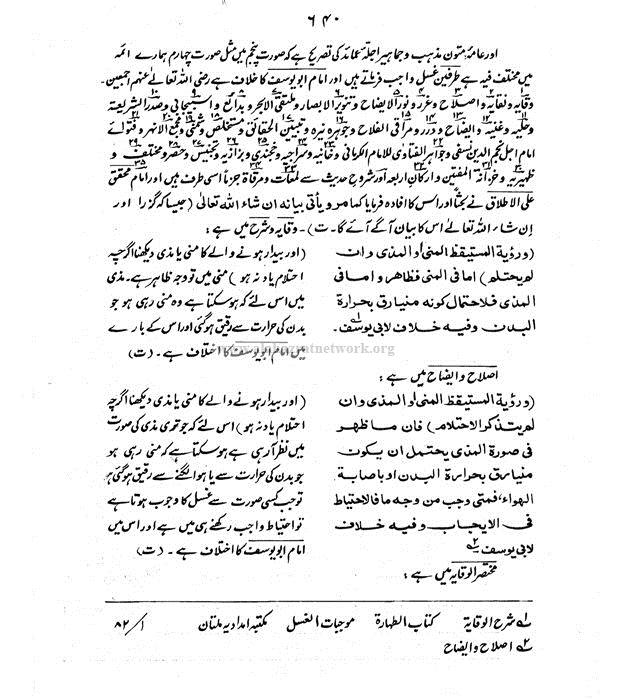 ۶۴۰
اور عامۂ متون مذہب و جماہیر اجلہ عمائد کی تصریح ہے کہ صورت پنجم میں مثل صورت چہارم ہمارے ائمہ
میں مختلف فیہ ہے طرفین غسل واجب فرماتے ہیں اور امام ابویوسف کا خلاف ہے رضی اللہ تعالٰی عنہم اجمعین۔
وقایہ ونقایہ و اصلاح و غرر و نور الایضاح و تنویر الابصار و ملتقی الابحر و بدائع و اسبیجابی و صدر الشریعۃ
و حلیہ و غنیہ و ایضاح و درر و مراقی الفلاح و جوہرہ نیرہ و تبیین الحقائق و مستخلص و شمنی و مجمع الانہر و فتاوٰے
امام اجل نجم الدین نسفی و جواہر الفتاوٰی للامام الکرمانی و خانیہ و سراجیہ و خجندی و بزازیہ و تجنیس و حصر و مختلف و
ظہیریہ و خزانۃ المفتین و ارکان اربعہ اور شروح حدیث سے لمعات و مرقاۃ جزماً اسی طرف ہیں اور امام محقق
علی الاطلاق نے بحثاً اور اس کا افادہ فرمایا کما مر و یأتی بیانہ ان شاء اللہ تعالٰی (جیسا کہ گزرا اور
اِن شاء اللہ تعالٰی اس کا بیان آگے آئے گا۔ت)۔ وقایہ و شرح میں ہے :
(ورؤیۃ المستیقظ المنی او المذی وان
لم یحتلم) اما فی المنی فظاھر واما فی
المذی فلاحتمال کونہ منیا رق بحرارۃ
البدن وفیہ خلاف لابی یوسف۔۱
(اور بیدار ہونے والے کا منی یا مذی دیکھنا اگرچہ
احتلام یاد نہ ہو) منی میں تو وجہ ظاہر ہے۔ مذی
میں اس لئے کہ ہوسکتا ہے وہ منی رہی ہو جو
بدن کی حرارت سے رقیق ہوگئی اور اس کے بارے
میں امام ابویوسف کا اختلاف ہے۔ (ت)
www.alahazratnetwork.org
اصلاح و ایضاح میں ہے :
(ورؤیۃ المستیقظ المنی او المذی وان
لم یتذکر الاحتلام) فان ما ظھر
فی صورۃ المذی یحتمل ان یکون
منیا رق بحرارۃ البدن او باصابۃ
الھواء، فمتی وجب من وجہ فالاحتیاط
فی الایجاب وفیہ خلاف
لابی یوسف۔۲
(اور بیدار ہونے والے کا منی یا مذی دیکھنا اگرچہ
احتلام یاد نہ ہو) اس لئے کہ جو تری مذی کی صورت
میں نظر آرہی ہے ہوسکتا ہے کہ منی رہی ہو
جو بدن کی حرارت سے یا ہوا لگنے سے رقیق ہوگئی ہو
تو جب کسی صورت سے غسل کا وجوب ہوتا ہے
تو احتیاط واجب رکھنے ہی میں ہے اور اس میں
امام ابویوسف کا اختلاف ہے۔ (ت)
مختصر الوقایہ میں ہے :
۱ شرح الوقایۃ کتاب الطہارۃ موجبات الغسل مکتبہ امدادیہ ملتان ۱/ ۸۲
۲ اصلاح و ایضاح